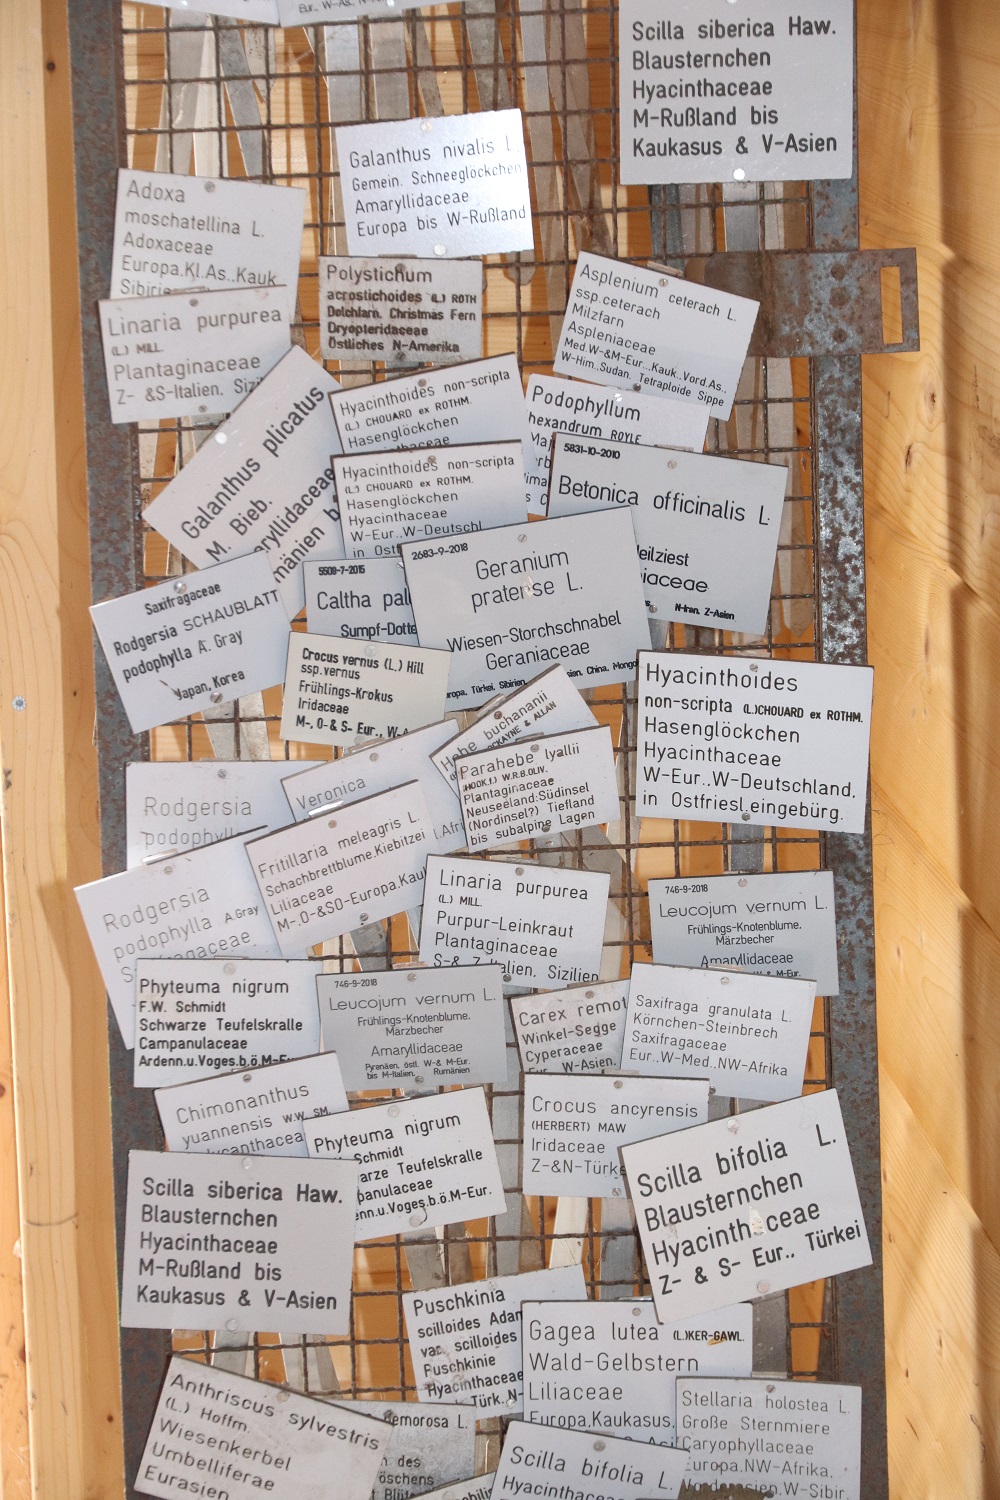 Eur., W-As., N-
Scilla siberica Haw.
Blausternchen
Hyacinthaceae
M-Rußland bis
Kaukasus & V-Asien
Galanthus nivalis L
Gemein. Schneeglöckchen
Amaryllidaceae
Europa bis W-Rußland
Adoxa
moschatellina L.
Adoxaceae
Europa.Kl.As..Kauk
Sibirie
Polystichum
acrostichoides (L.) ROTH
Dolchfarn, Christmas Fern
Dryopteridaceae
Östliches N-Amerika
Asplenium ceterach L.
ssp.ceterach
Milzfarn
Aspleniaceae
Med.W-&M-Eur...Kauk..Vord.As..
W-Him..Sudan. Tetraploide Sippe
Linaria purpurea
(L.) MILL.
Plantaginaceae
Z- &S-Italien, Sizi
Galanthus plicatus
M. Bieb.
aryllidaceae
mänien b
Hyacinthoides non-scripta
(L.) CHOUARD ex ROTHM.
Hasenglöckchen
thaceae
Podophyllum
hexandrum ROYLE
Hyacinthoides non-scripta
(L.) CHOUARD ex ROTHM.
Hasenglöckchen
Hyacinthaceae
W-Eur..W-Deutschl
in Ostf
5831-10-2010
Betonica officinalis L.
eilziest
iaceae
N-Iran. Z-Asien
2683-9-2018
Geranium
pratense L.
Wiesen-Storchschnabel
Geraniaceae
uropa, Türkei, Sibirien, sien, China, Mongol
5508-7-2015
Caltha pal
Sumpf-Dotte
Saxifragaceae
Rodgersia SCHAUBLATT
podophylla A. Gray
Japan, Korea
Crocus vernus (L.) Hill
ssp.vernus
Frühlings-Krokus
Iridaceae
M-, O- & S- Eur., W-A
Hyacinthoides
non-scripta (L.)CHOUARD ex ROTHM.
Hasenglöckchen
Hyacinthaceae
W-Eur..W-Deutschland,
in Ostfriesl.eingebürg.
Hebe buchananii
CKAYNE & ALLAN
Parahebe lyallii
(HOOK.f.) W.R.B.OLIV.
Plantaginaceae
Neuseeland:Südinsel
(Nordinsel?) Tiefland
bis subalpine Lagen
Veronica
Rodgersia
podophyll
Fritillaria meleagris L.
Schachbrettblume.Kiebitzei
Liliaceae
M-.O-&SO-Europa.Kau
Rodgersia
podophylla A.Gray
S gaceae
Linaria purpurea
(L.) MILL.
Purpur-Leinkraut
Plantaginaceae
S-& Z-Italien, Sizilien
746-9-2018
Leucojum vernum L.
Frühlings-Knotenblume,
Märzbecher
Amaryllidaceae
Phyteuma nigrum
F.W. Schmidt
Schwarze Teufelskralle
Campanulaceae
Ardenn.u.Voges.b.ö.M-Eur
746-9-2018
Leucojum vernum L.
Frühlings-Knotenblume,
Märzbecher
Amaryllidaceae
Pyrenäen, östl. W-& M-Eur.
bis M-Italien, Rumänien
Carex remot
Winkel-Segge
Cyperaceae
Eur. W-Asien,
Saxifraga granulata L.
Körnchen-Steinbrech
Saxifragaceae
Eur..W-Med..NW-Afrika
Chimonanthus
yuannensis W.W. SM.
lycanthacea
Phyteuma nigrum
Schmidt
arze Teufelskralle
panulaceae
enn.u.Voges.b.ö.M-Eur.
Crocus ancyrensis
(HERBERT) MAW
Iridaceae
Z-&N-Türke
Scilla bifolia L.
Blausternchen
Hyacinthaceae
Z- & S- Eur., Türkei
Scilla siberica Haw.
Blausternchen
Hyacinthaceae
M-Rußland bis
Kaukasus & V-Asien
Puschkinia
scilloides Adan
var. scilloides
Puschkinie
Hyacinthaceae
Türk.N-
Gagea lutea (L.)KER-GAWL.
Wald-Gelbstern
Liliaceae
Europa,Kaukasus,
Anthriscus sylvestris
(L.) Hoffm.
Wiesenkerbel
Umbelliferae
Eurasien
emorosa L.
n des
öschens
Blüte
Stellaria holostea L.
Große Sternmiere
Caryophyllaceae
Europa.NW-Afrika.
Vorderasien.W-Sibir.
Scilla bifolia L.
Hyacinthaceae